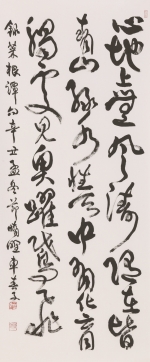 心地上無風濤隨在皆
青山綠水性天中有化育
觸處見魚躍鳶飛
錄菜根譚句辛丑孟冬